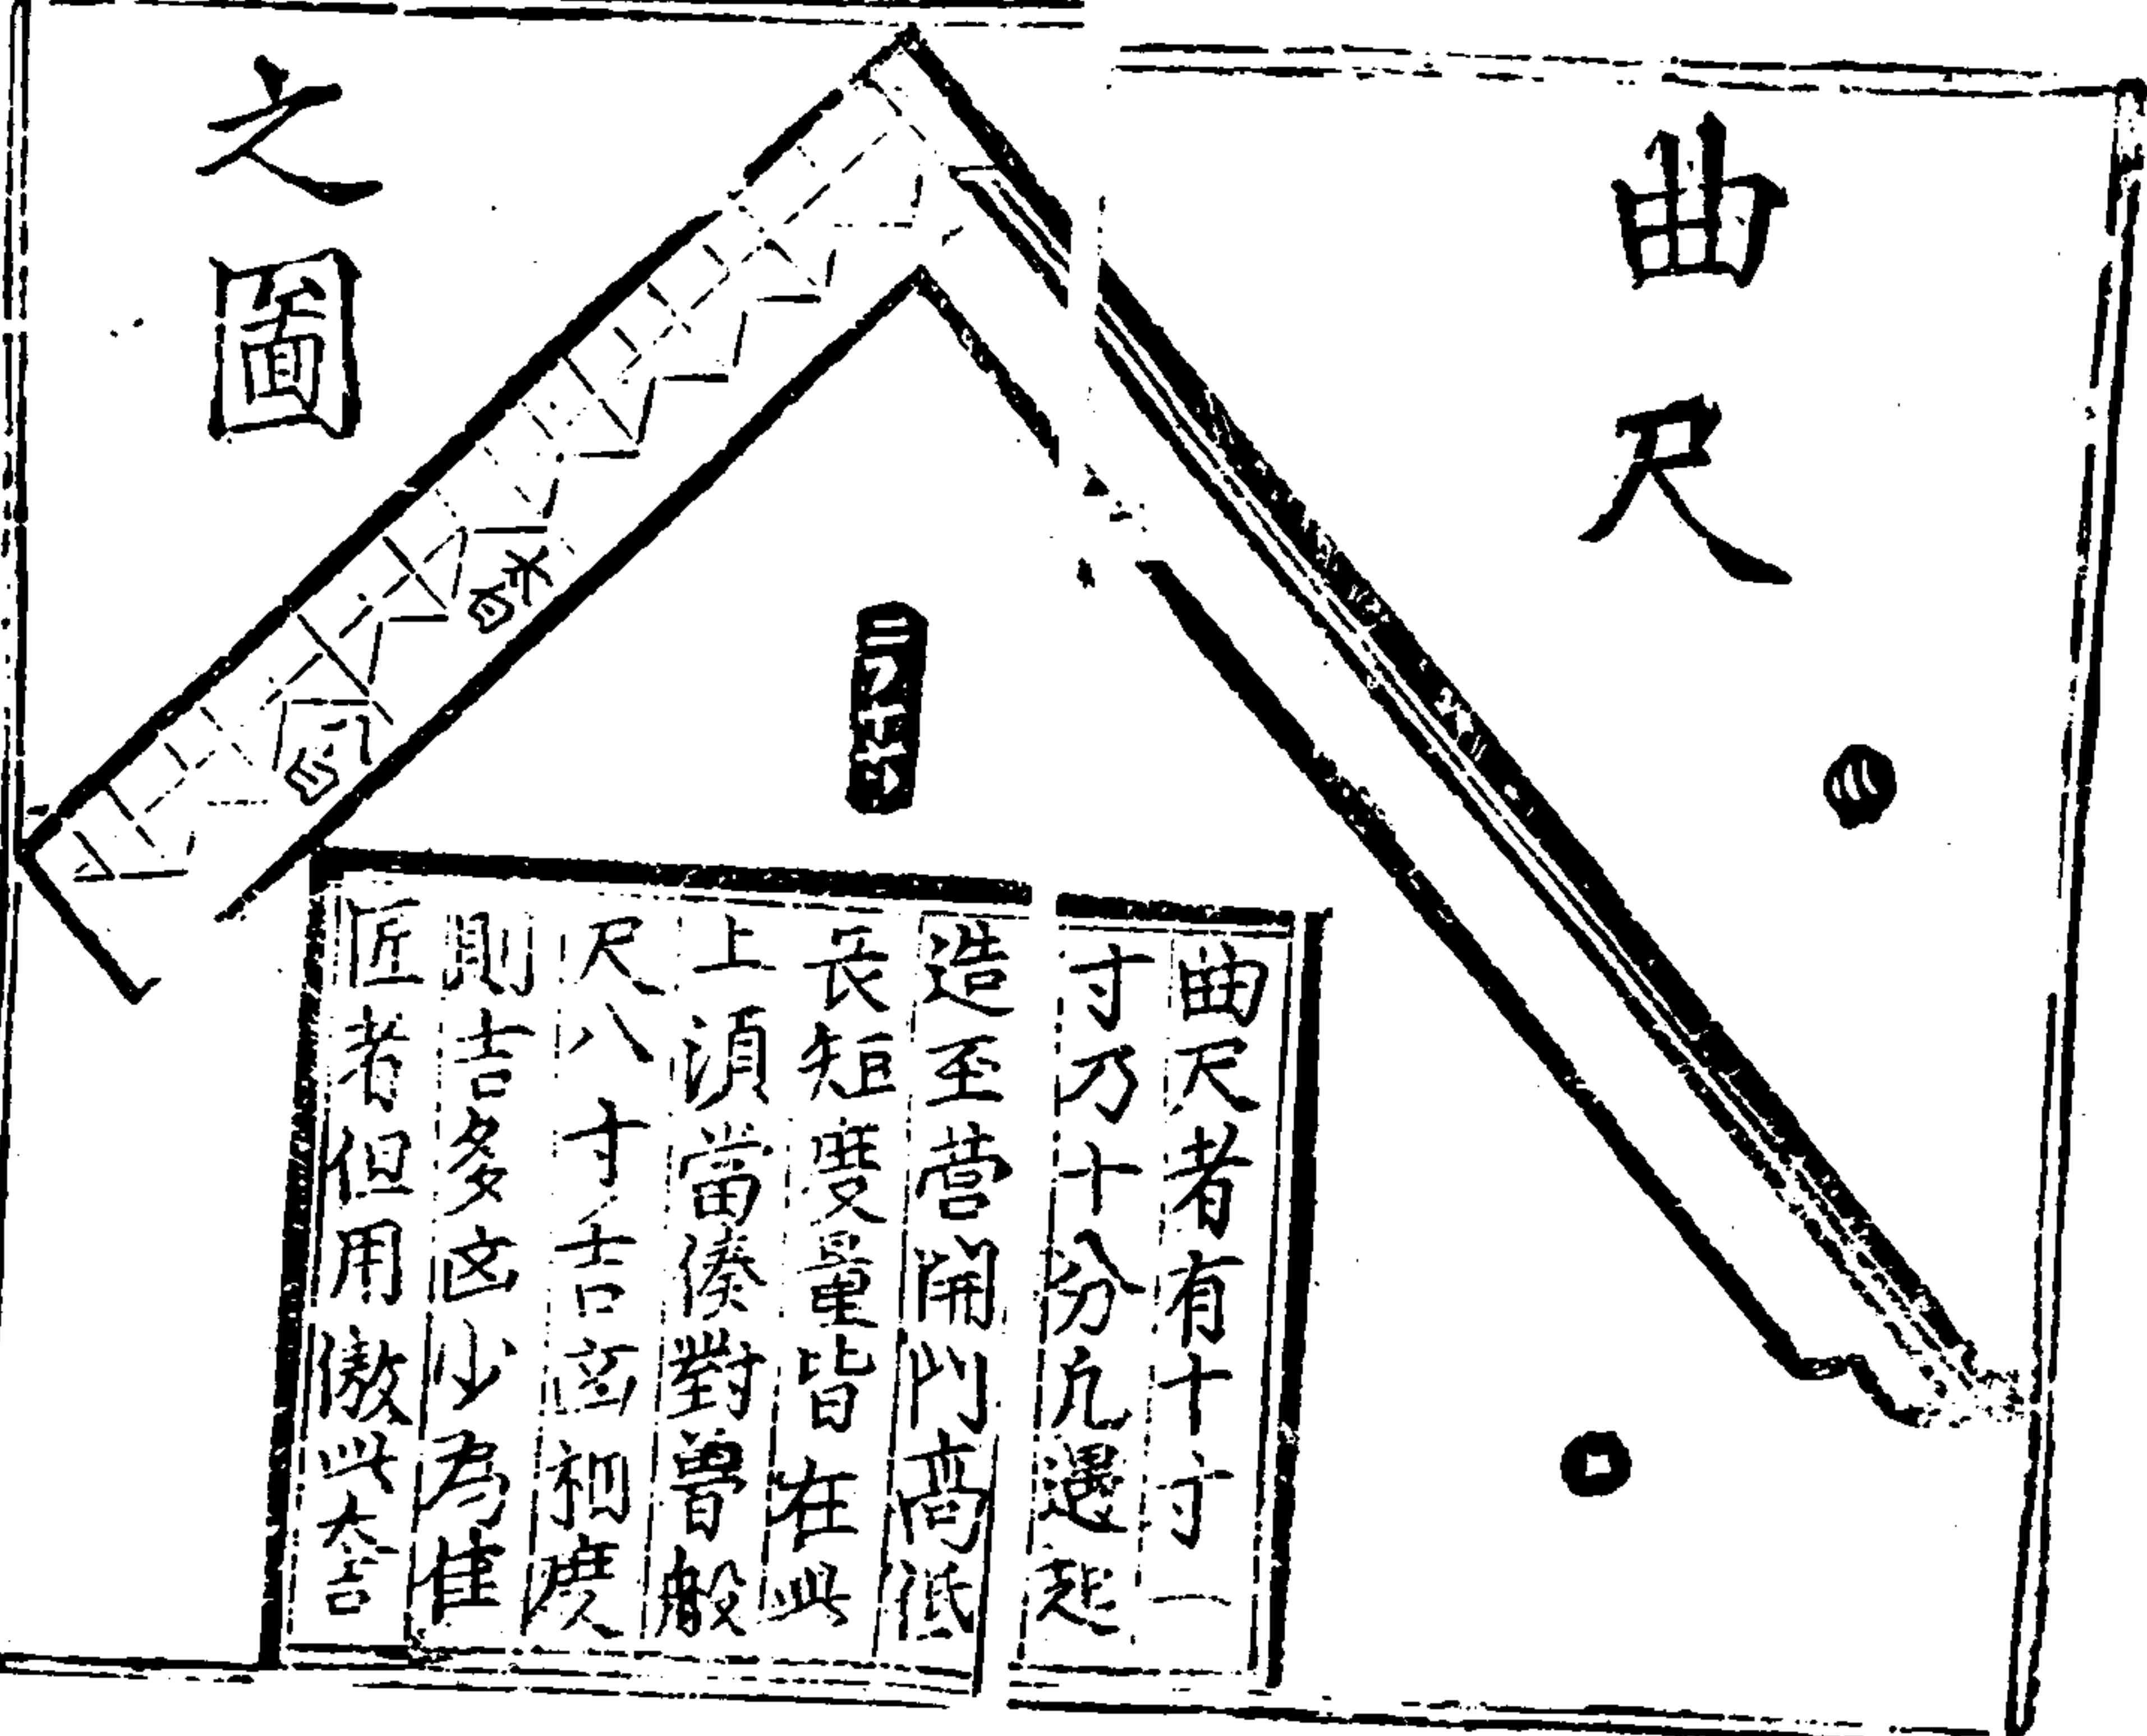 曲尺
之圖
曲尺者有十寸一
寸乃十分凡遇起
造至营開門高低
長短度量皆在此
上須當湊對魯般
尺八寸吉凶相度
則吉多凶少為隹
匠者但用倣此大吉